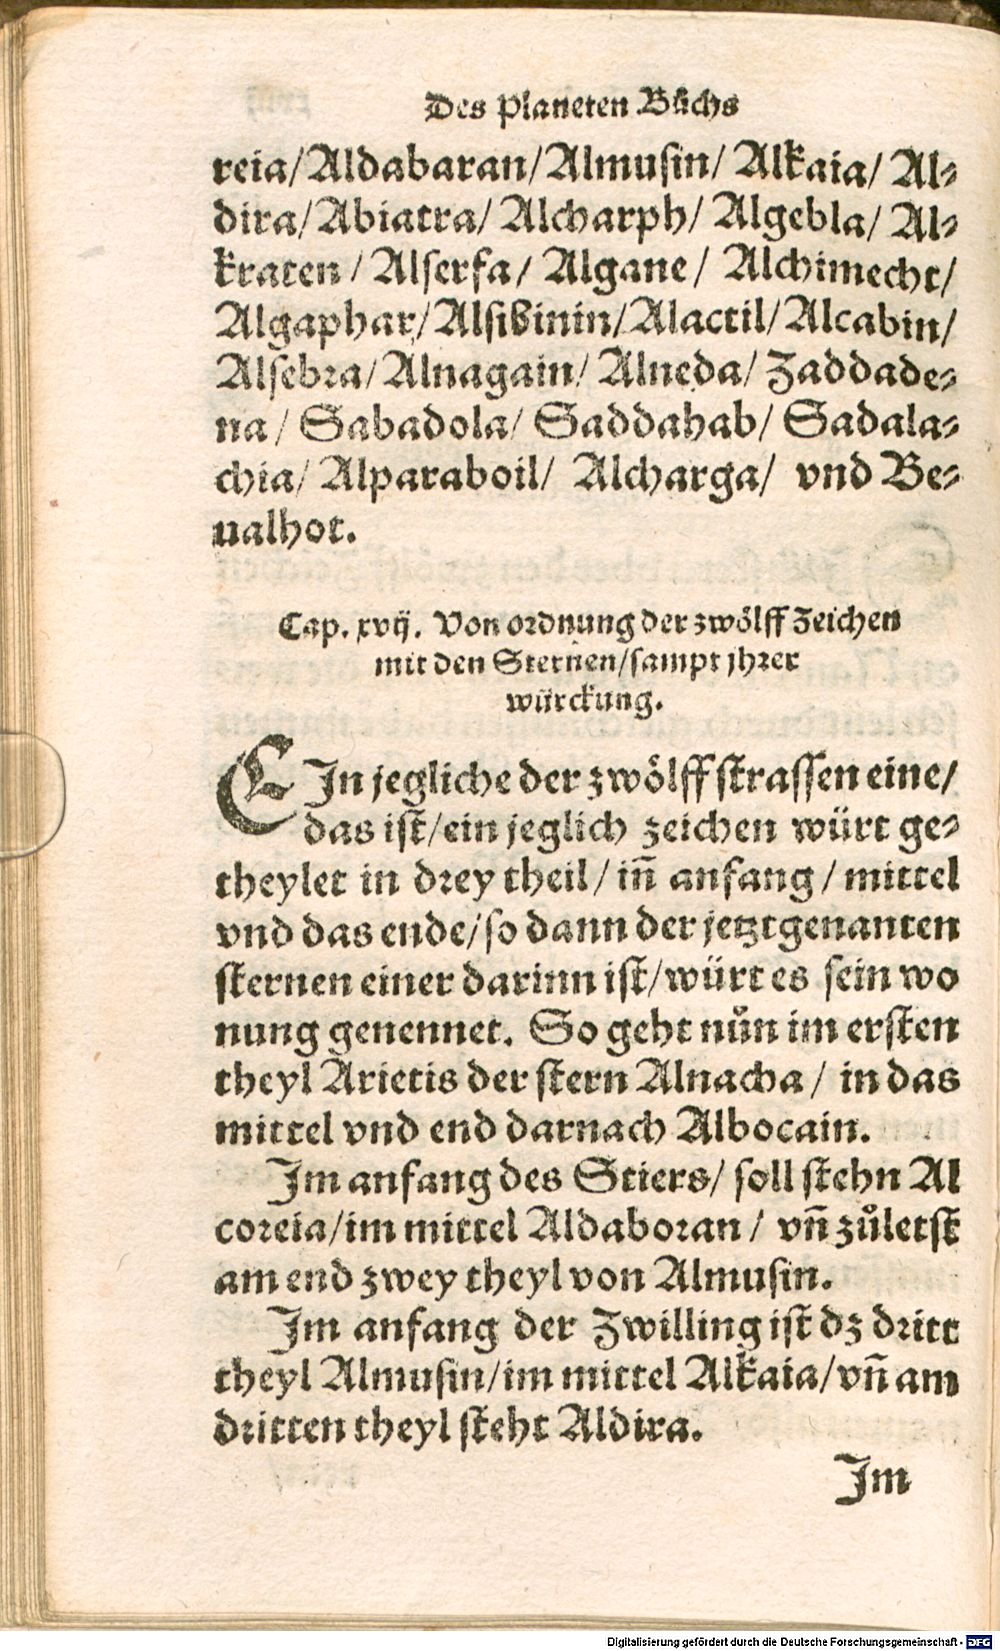 Des Planeten Bůchs
reia/Aldabaran/Almusin/ Alkaia/ Al⸗
dira/ Abiatra/ Alcharph/ Algebla/ Al⸗
kraten / Alserfa/ Algane/ Alchimecht/
Algaphar/Alsißinin/Alactil/Alcabin/
Alsebra/Alnagain/ Alneda/ Zaddade⸗
na/ Sabadola/ Saddahab/ Sadala⸗
chia/ Alparaboil/ Alcharga/ vnd Be⸗
ualhot.
Cap. xvij. Von ordnung der zwölff Zeichen
mit den Sternen/sampt jhrer
würckung.
EIn jegliche der zwölff strassen eine/
das ist/ein jeglich zeichen würt ge⸗
theylet in drey theil/ in̄ anfang/ mittel
vnd das ende/so dann der jetztgenanten
sternen einer darinn ist/würt es sein wo
nung genennet. So geht nůn im ersten
theyl Arietis der stern Alnacha/ in das
mittel vnd end darnach Albocain.
Im anfang des Stiers/ soll stehn Al
coreia/im mittel Aldaboran/ vn̄ zůletst
am end zwey theyl von Almusin.
Im anfang der Zwilling ist dz dritt
theyl Almusin/im mittel Alkaia/vn̄ am
dritten theyl steht Aldira.
Im
Digitalisierung gefördert durch die Deutsche Forschungsgemeinschaft - DFG